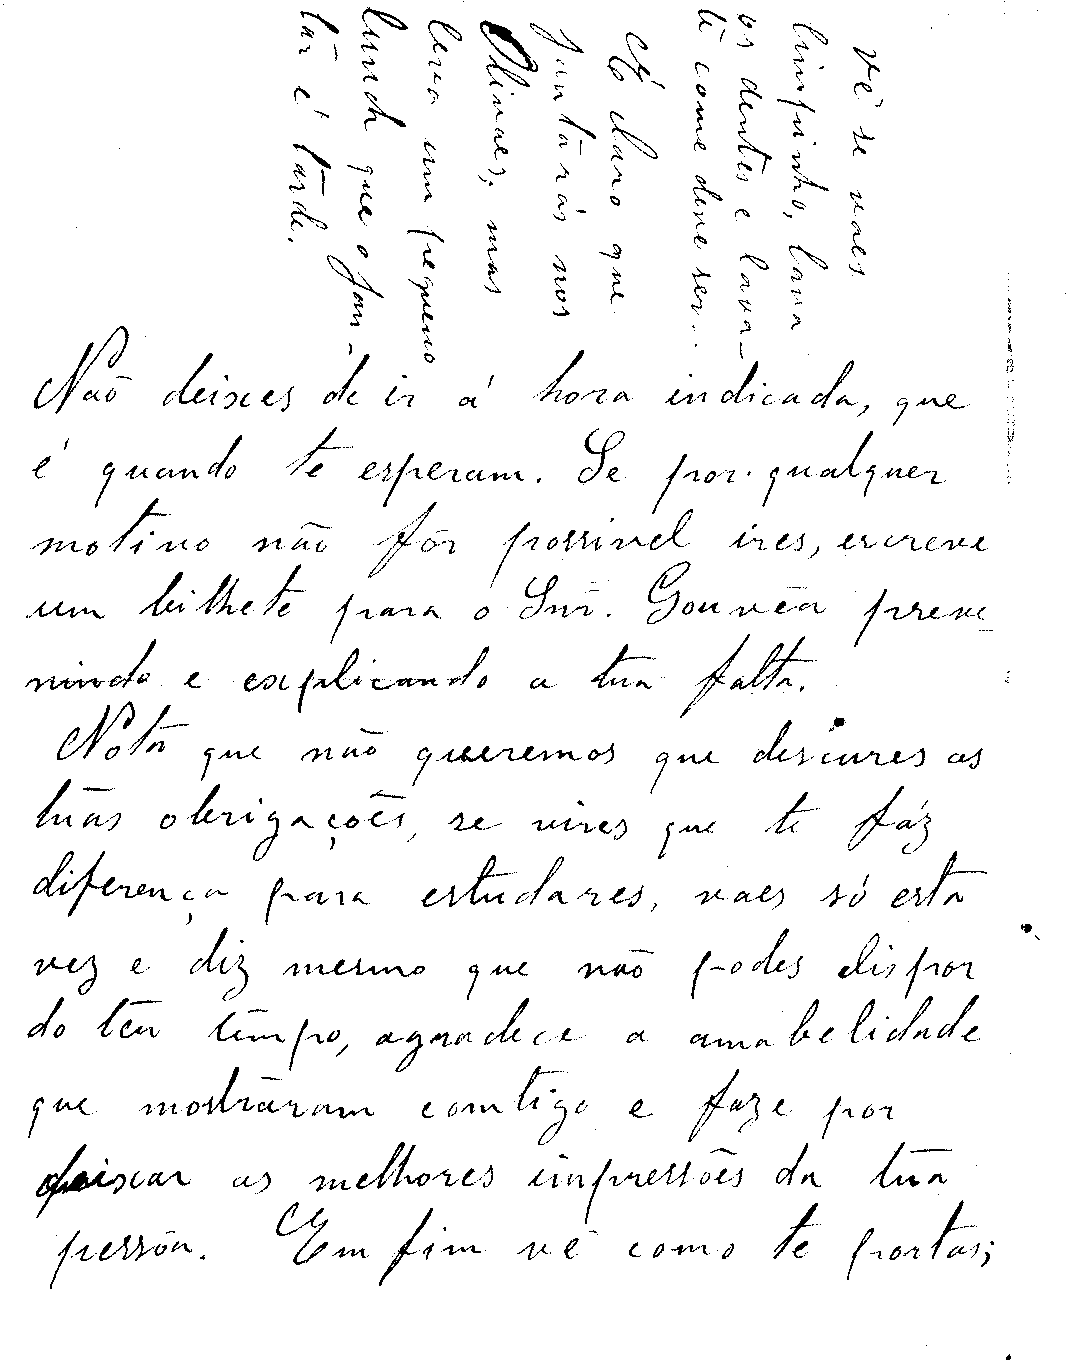 Não deixes de ir á hora indicada, que
é quando te esperam. Se por qualquer
motivo não fôr possivel ires, escreve
um bilhete para o Snr. Gouvêa preve-
nindo e explicando a tua falta.
Nota que não queremos que descures as
tuas obrigações, se vires que te fáz
diferença para estudares, vaes só esta
vez e diz mesmo que não podes dispor
do teu tempo, agradece a amabelidade
que mostraram comtigo e faze por
deixar as melhores impressões da tua
pessôa. Em fim vê como te portas;
vê se vaes
limpinho, lava
os dentes e lava-
te como deve ser...
É claro que
jantarás nos
Olivaes, mas
leva um pequeno
lunch que o jan-
tar é tarde.